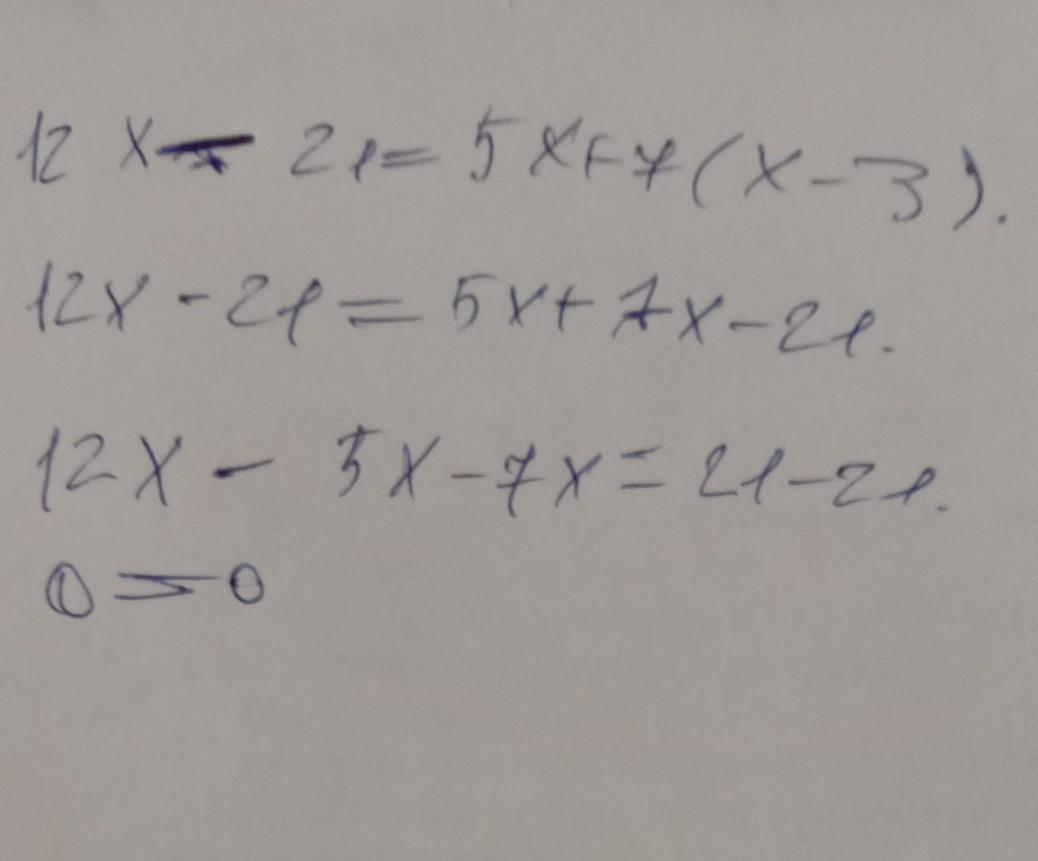 12 x - 21 = 5x+7(x-3).
12x - 21 = 5x+ 7x-21.
12x - 5x-7x = 21-21.
0 = 0